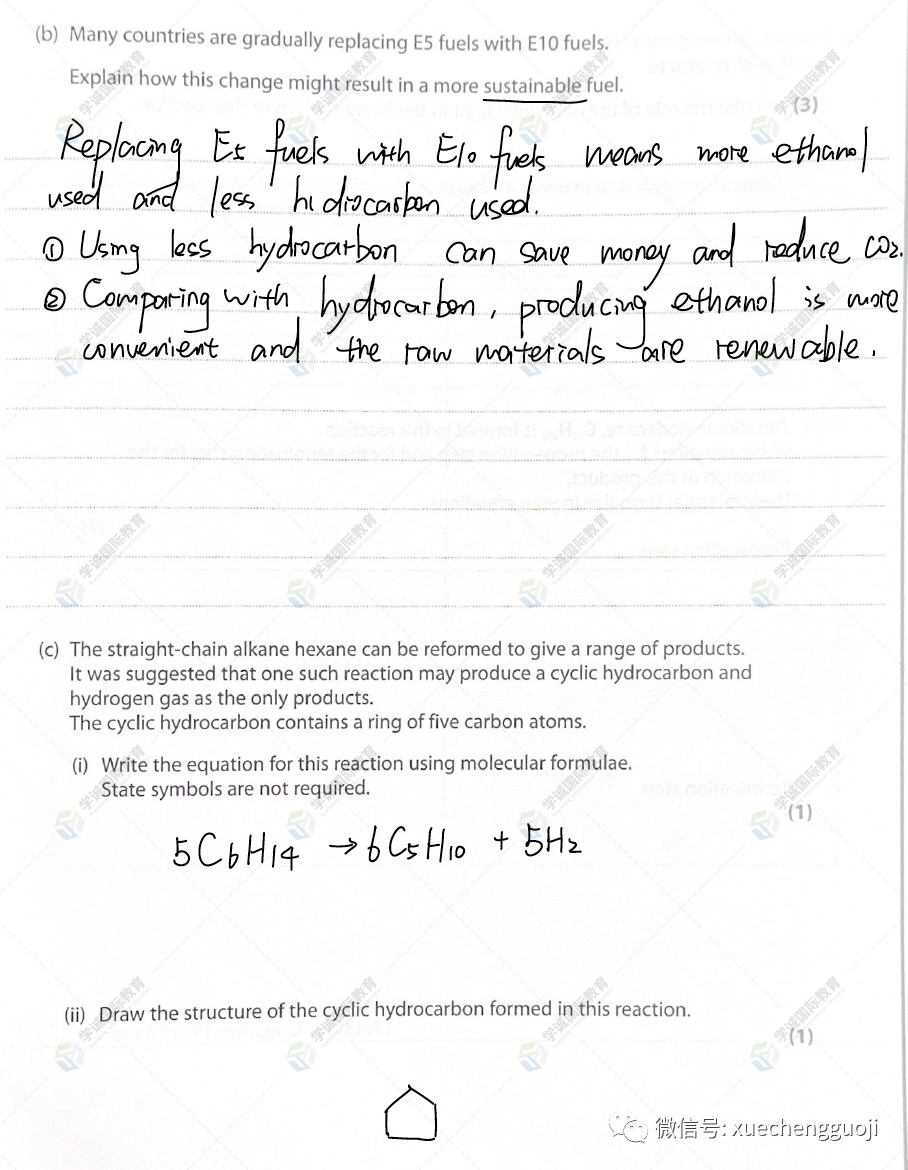 (b) Many countries are gradually replacing E5 fuels with E10 fuels.
Explain how this change might result in a more sustainable fuel.
(3)
Replacing E5 fuels with E10 fuels means more ethanol
used and less hidrocarbon used.
① Using less hydrocarbon can save money and reduce CO2.
② Comparing with hydrocarbon, producing ethanol is more
convenient and the raw materials are renewable.
(c) The straight-chain alkane hexane can be reformed to give a range of products.
It was suggested that one such reaction may produce a cyclic hydrocarbon and
hydrogen gas as the only products.
The cyclic hydrocarbon contains a ring of five carbon atoms.
(i) Write the equation for this reaction using molecular formulae.
State symbols are not required.
(1)
5C6H14 → 6C5H10 + 5H2
(ii) Draw the structure of the cyclic hydrocarbon formed in this reaction.
(1)
微信号: xuechengguoji
学诚国际教育